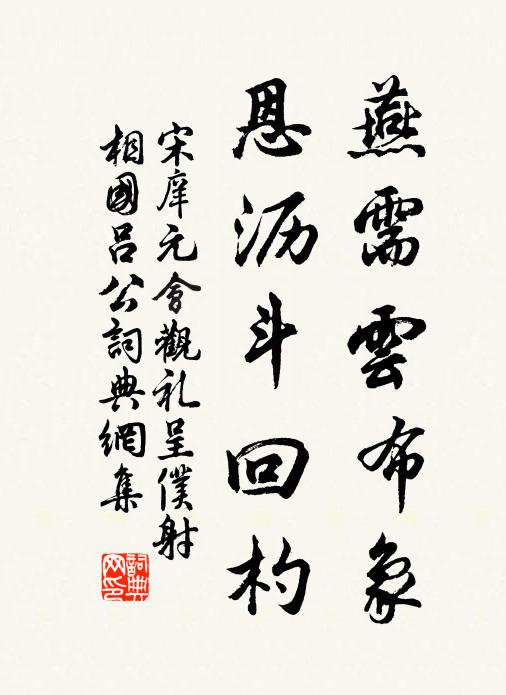 燕需雲布象
恩沥斗回杓
宋庠元會觀礼呈僕射
相國吕公詞典網集
詞典
网印